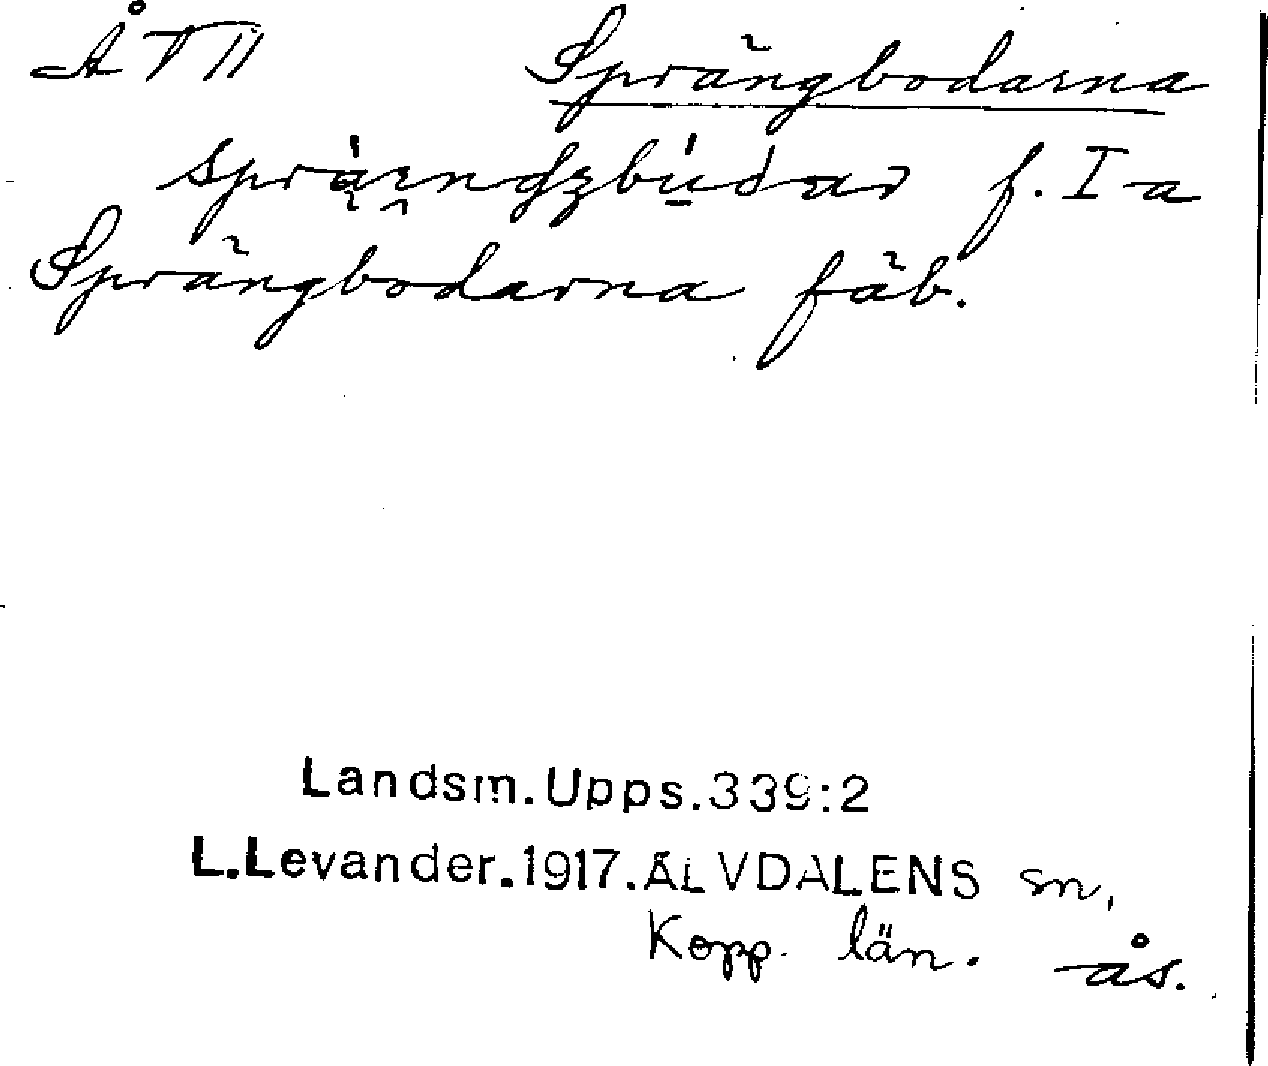 ÅT II Sprängbodarna
f. I a
Sprängbodarna fäb.
Landsm.Upps.339:2
L.Levander.1917.ÄLVDALENS sn,
Kopp. län. ås.